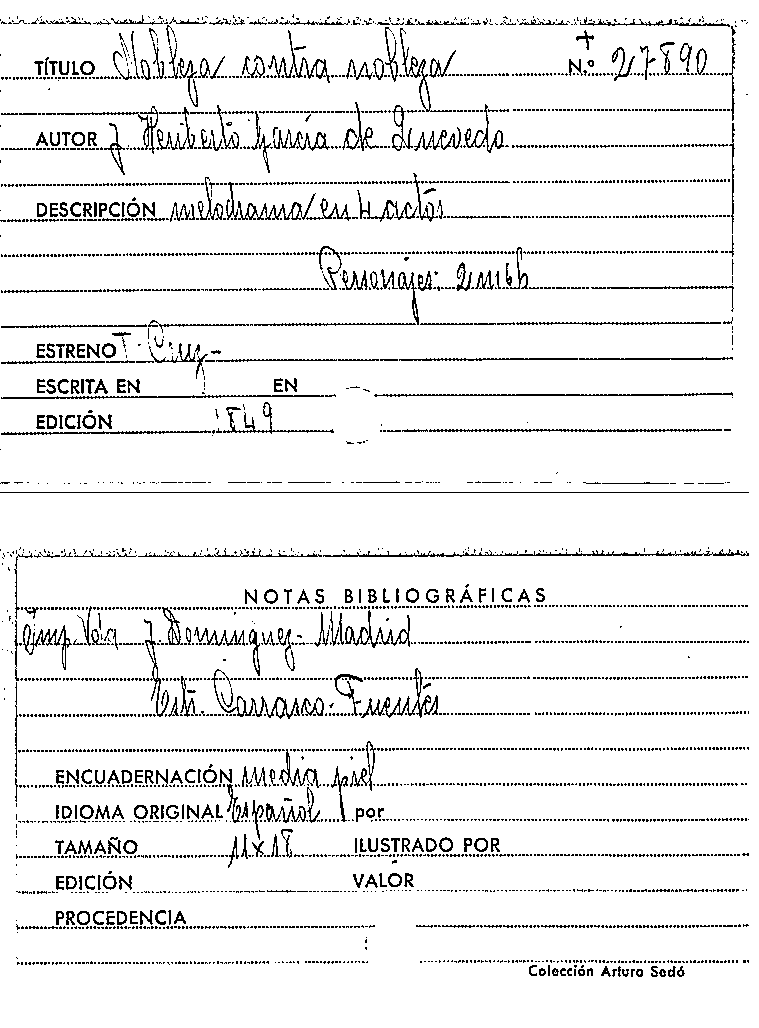 TÍTULO Nobleza contra nobleza + N.º 27890
AUTOR J Heriberto García de Quevedo
DESCRIPCIÓN melodrama en 4 actos
Personajes: 2 m 6 h
ESTRENO T. Cruz-
ESCRITA EN EN
EDICIÓN 1849
NOTAS BIBLIOGRÁFICAS
Imp. Vda J. Domínguez- Madrid
Estr. Carrasco- Fuentes
ENCUADERNACIÓN media piel
IDIOMA ORIGINAL Español por
TAMAÑO 11x18 ILUSTRADO POR
EDICIÓN VALOR
PROCEDENCIA
Colección Arturo Sedó